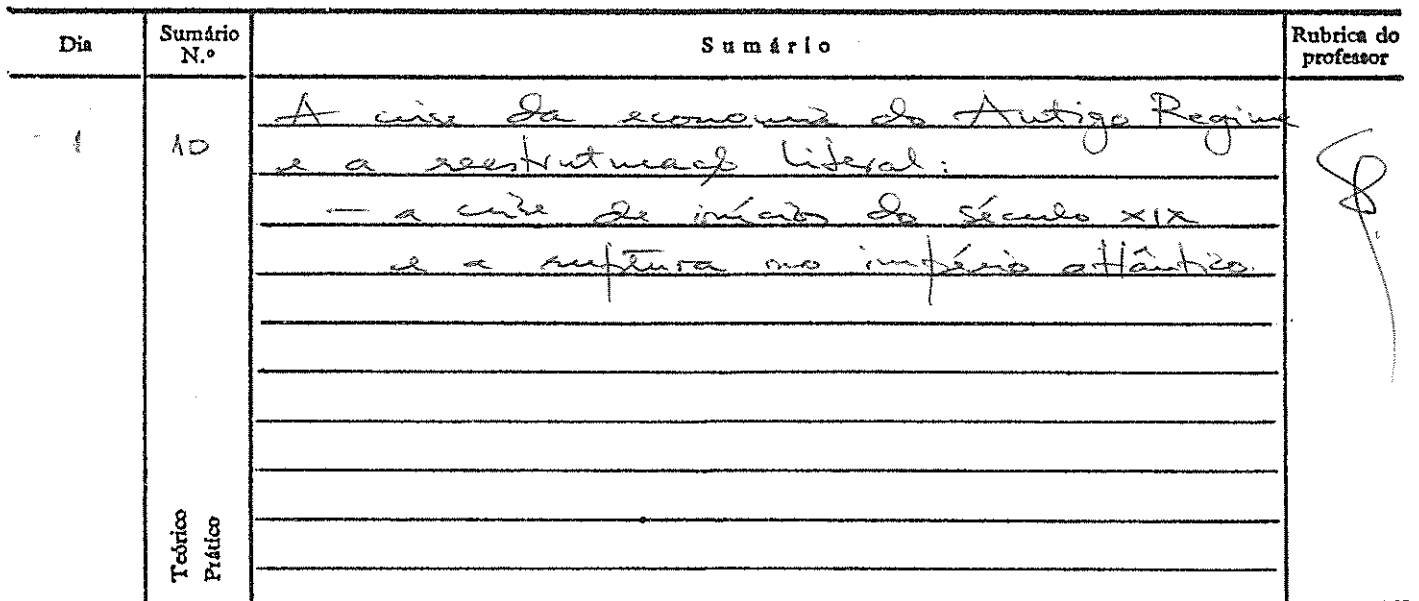 Dia
Sumário N.º
Sumário
Rubrica do professor
1
10
A crise da economia do Antigo Regime
e a reestruturação liberal:
— a crise de inícios do século XIX
e a ruptura no império atlântico.
Teórico
Prático